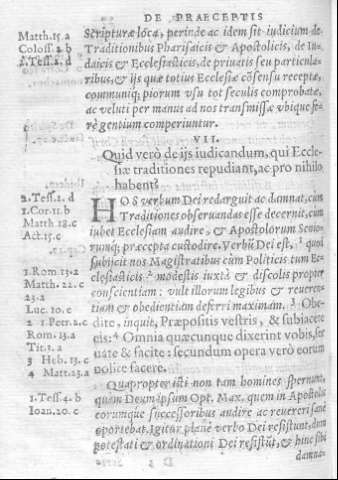 DE PRAECEPTIS
Matth.15.a
Coloss.2.b
2.Tess.2.d
Scripturæ loca, perinde ac idem sit iudicium de
Traditionibus Pharisaicis & Apostolicis, de Iu-
daicis & Ecclesiasticis, de priuatis seu particula-
ribus, & ijs quæ totius Ecclesiæ cõsensu receptæ,
communiq; piorum vsu tot seculis comprobatæ,
ac veluti per manus ad nos transmissæ vbique fe-
rè gentium comperiuntur.
VII.
Quid verò de ijs iudicandum, qui Eccle-
siæ traditiones repudiant, ac pro nihilo
habent?
2.Tess.2.d
1.Cor.11.b
Matth.18.c
Act.15.c
HOS verbum Dei redarguit ac damnat, cùm
Traditiones obseruandas esse decernit, cùm
iubet Ecclesiam audire, & Apostolorum Senio-
rumq; præcepta custodire. Verbũ Dei est, 1 quod
subijcit nos Magistratibus cùm Politicis tum Ec-
clesiasticis 2 modestis iuxtà & discolis propter
conscientiam: vult illorum legibus & reueren-
tiam & obedientiam deferri maximam. 3 Obe-
dite, inquit, Præpositis vestris, & subiacete
eis: 4 Omnia quæcunque dixerint vobis, ser-
uate & facite: secundum opera verò eorum
nolite facere.
1.Rom 13.a
Matth.22.c
23.a
Luc.10.c
2 1 Petr.2.c
Rom.13.a
Tit.3.a
3 Heb.13.c
4 Matt.23.a
Quapropter isti non tam homines spernunt,
quàm Deum ipsum Opt. Max. quem in Apostolis
eorumque successoribus audire ac reuereri sanè
oportebat. Igitur planè verbo Dei resistunt, dum
potestati & ordinationi Dei resistũt, & hinc sibi
1.Tess.4.b
Ioan.20.c
damna-